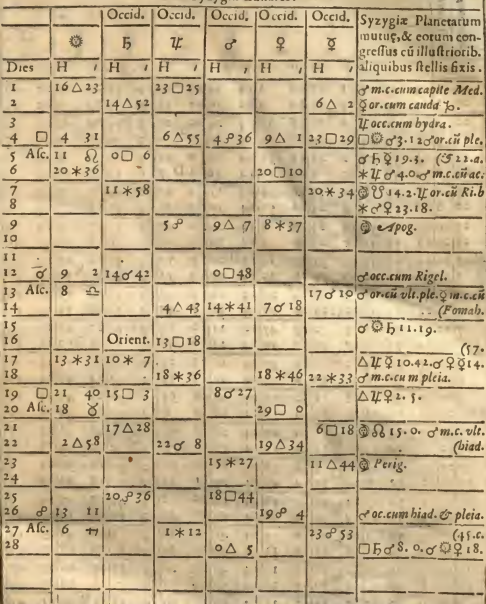 Occid. Occid. Occid. Occid. Occid. Syzygiæ Planetarum
mutuę, & eorum con-
☼ ♄ ♃ ♂ ♀ ☿ gressus cū illustriorib.
Dies H ′ H ′ H ′ H ′ H ′ H ′ aliquibus stellis fixis.
1 16 △ 23 23 □ 25 ♂ m.c.cum capite Med.
2 14 △ 52 6 △ 2 ☿ or.cum cauda ♑.
3 ♃ occ.cum hydra.
4 □ 4 31 6 △ 55 4 ☍ 36 9 △ 1 23 □ 29 □ ☼ ♂ 3. 12 ♂ or.cū ple.
5 Asc. 11 ♌ 0 □ 6 ♂ ♄ ♀ 19.3. (& 22.a.
6 20 ✶ 36 20 □ 10 ✶ ♃ ♂ 4.0. ♂ m.c.cū ac.
7 11 ✶ 58 20 ✶ 34 ☋ 14.2. ♃ or.cū Ri.b
8 ✶ ♂ ♀ 23.18.
9 5 ☍ 9 △ 7 8 ✶ 37 Apog.
10
11
12 ☌ 9 2 14 ☌ 42 0 □ 48 ♂ occ.cum Rigel.
13 Asc. 8 ♎ 17 ☌ 10 ♂ or.cū vlt.ple. ♀ m.c.cū
14 4 △ 43 14 ✶ 41 7 ☌ 18 (Fomah.
15 ☌ ☼ ♄ 11.19.
16 Orient. 13 □ 18 (57.
17 13 ✶ 31 10 ✶ 7 △ ♃ ☿ 10.42. ☌ ♀ ☿ 14.
18 18 ✶ 36 18 ✶ 46 22 ✶ 33 ♂ m.c.cum pleia.
19 □ 21 40 15 □ 3 8 ☌ 27 △ ♃ ♀ 2. 5.
20 Asc. 18 ♉ 29 □ 0
21 17 △ 28 6 □ 18 ☊ 15. 0. ♂ m.c. vlt.
22 2 △ 58 22 ☌ 8 19 △ 34 (hiad.
23 15 ✶ 27 11 △ 44 Perig.
24
25 20 ☍ 36 18 □ 44
26 ☍ 13 11 19 ☍ 4 ♂ oc.cum hiad. & pleia.
27 Asc. 6 1 ✶ 12 23 ☍ 53 (45.c.
28 0 △ 5 □ ♄ ♂ 8. 0. ☌ ☼ ♀ 18.